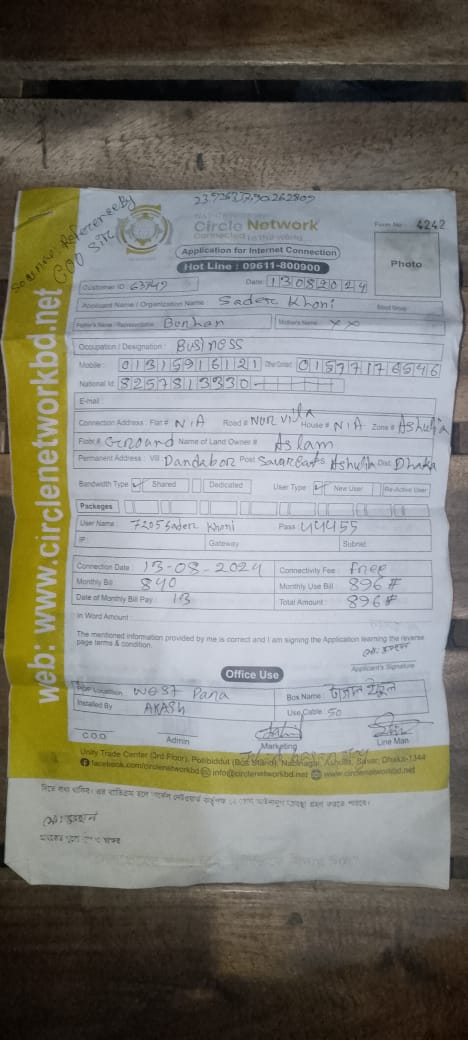 23.926337,90.262809
Reference By
COO Sir
Circle Network
Connected to the world
Form No : 4242
Application for Internet Connection
Hot Line : 09611-800900
Photo
Customer ID : 63749 Date: 13082024
Applicant Name / Organization Name : Sader Khoni
Blood Group
Father's Name / Representative : Borhan Mother's Name : XX
Occupation / Designation : Business
Mobile : 01315916121 01577176546
National Id : 8257813330
E-mail :
Connection Address : Flat # N/A Road # NUR Villa House # N/A Zone # Ashulia
Floor # Ground Name of Land Owner # Aslam
Permanent Address : Vill Dandabor Post PS Ashulia Dist. Dhaka
Bandwidth Type Shared Dedicated User Type : New User Re-Active User
Packeges
User Name : 7205 Sader Khoni Pass : 44455
IP : Gateway Subnet
Connection Date : 13-08-2024 Connectivity Fee : Free
Monthly Bill : 840 Monthly Use Bill : 896#
Date of Monthly Bill Pay : 13 Total Amount : 896#
In Word Amount :
The mentioned information provided by me is correct and I am signing the Application learning the reverse
page terms & condition.
Applicant's Signature
Office Use
POP Location : West Para Box Name :
Installed By : AKASH Use Cable : 50
C.O.O Admin Marketing Line Man
Unity Trade Center (3rd Floor), Pollibiddut (Bus Stand), Nabinagar, Ashulia, Savar, Dhaka-1344
facebook.com/circlenetworkbd info@circlenetworkbd.net www.circlenetworkbd.net
web: www.circlenetworkbd.net